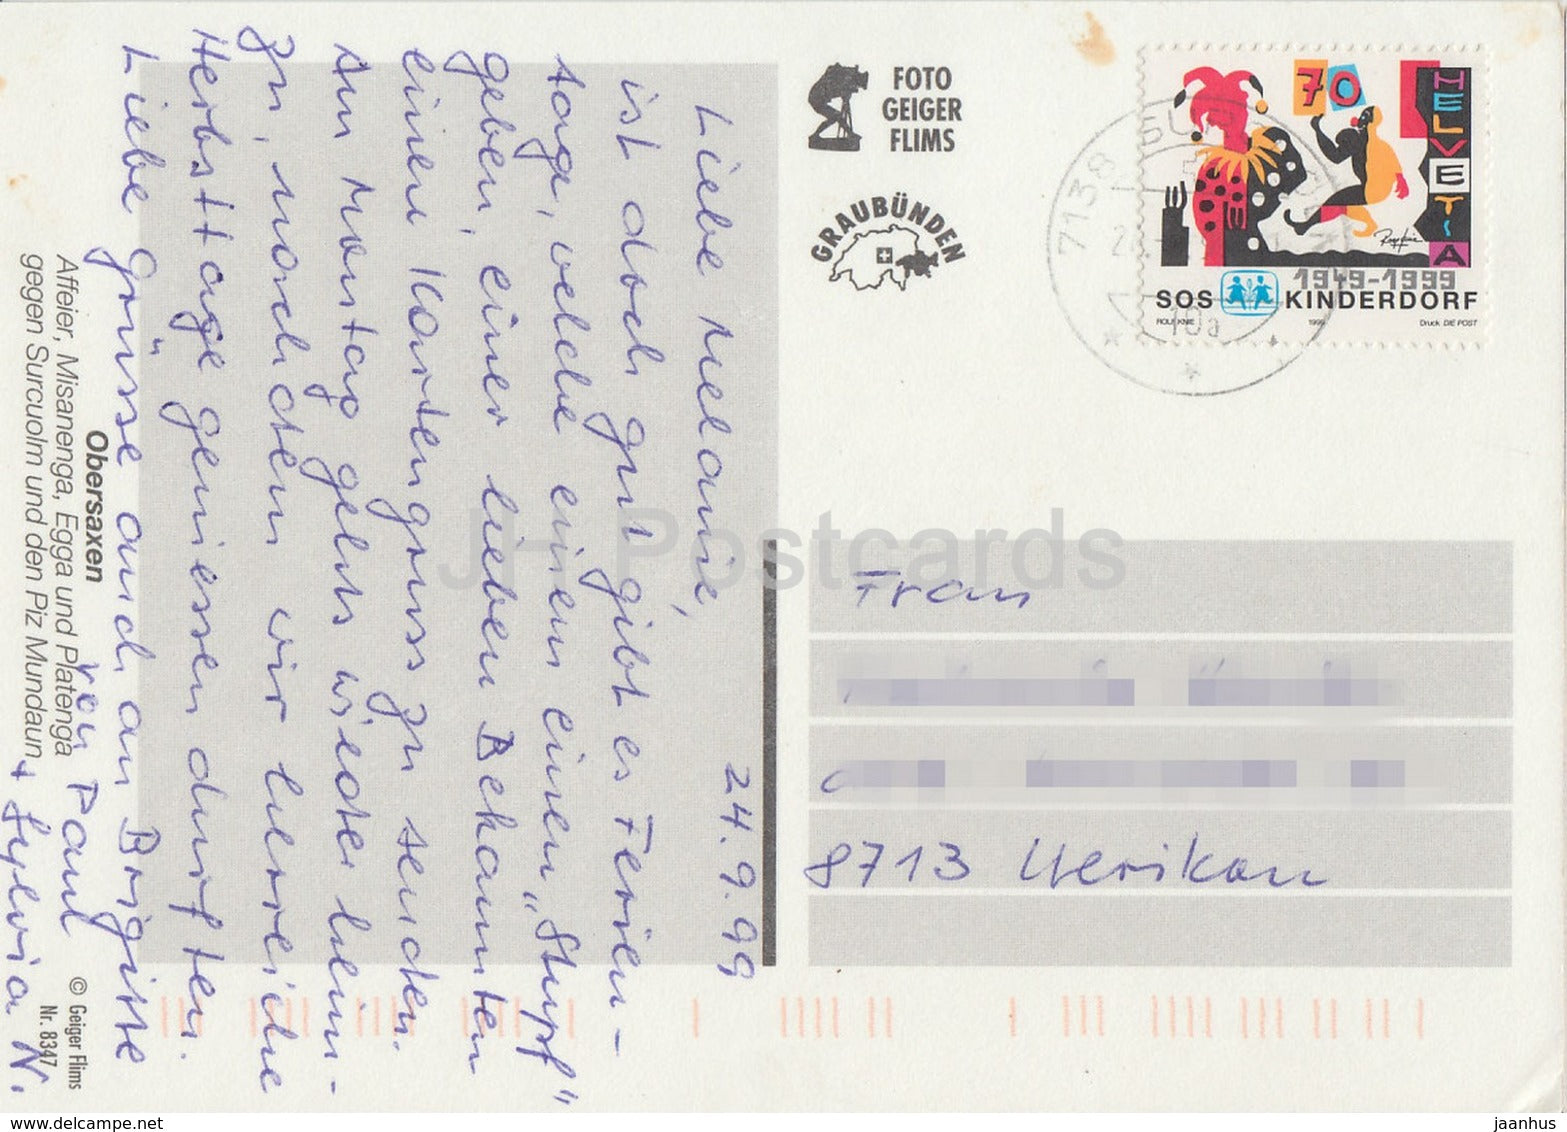 24.9.99
Liebe Melanie,
ist doch gut gibt es Ferien-
tage, welche einem einen „Stupf"
geben, einer lieben Bekannten
einen Kartengruss zu senden.
Am Montag gehts wieder heim-
zu, nachdem wir herrliche
Herbsttage geniessen durften.
Liebe Grüsse auch an Brigitte
von Paul
+ Sylvia N.
Obersaxen
Affeier, Misanenga, Egga und Platenga
gegen Surcuolm und den Piz Mundaun
© Geiger Flims
Nr. 8347
FOTO
GEIGER
FLIMS
GRAUBÜNDEN
70
HELVETIA
1949-1999
SOS KINDERDORF
ROLF KNIE 1999 Druck DIE POST
7138
10a
Frau
8713 Uerikon
JH Postcards
jaanhus
delcampe.net